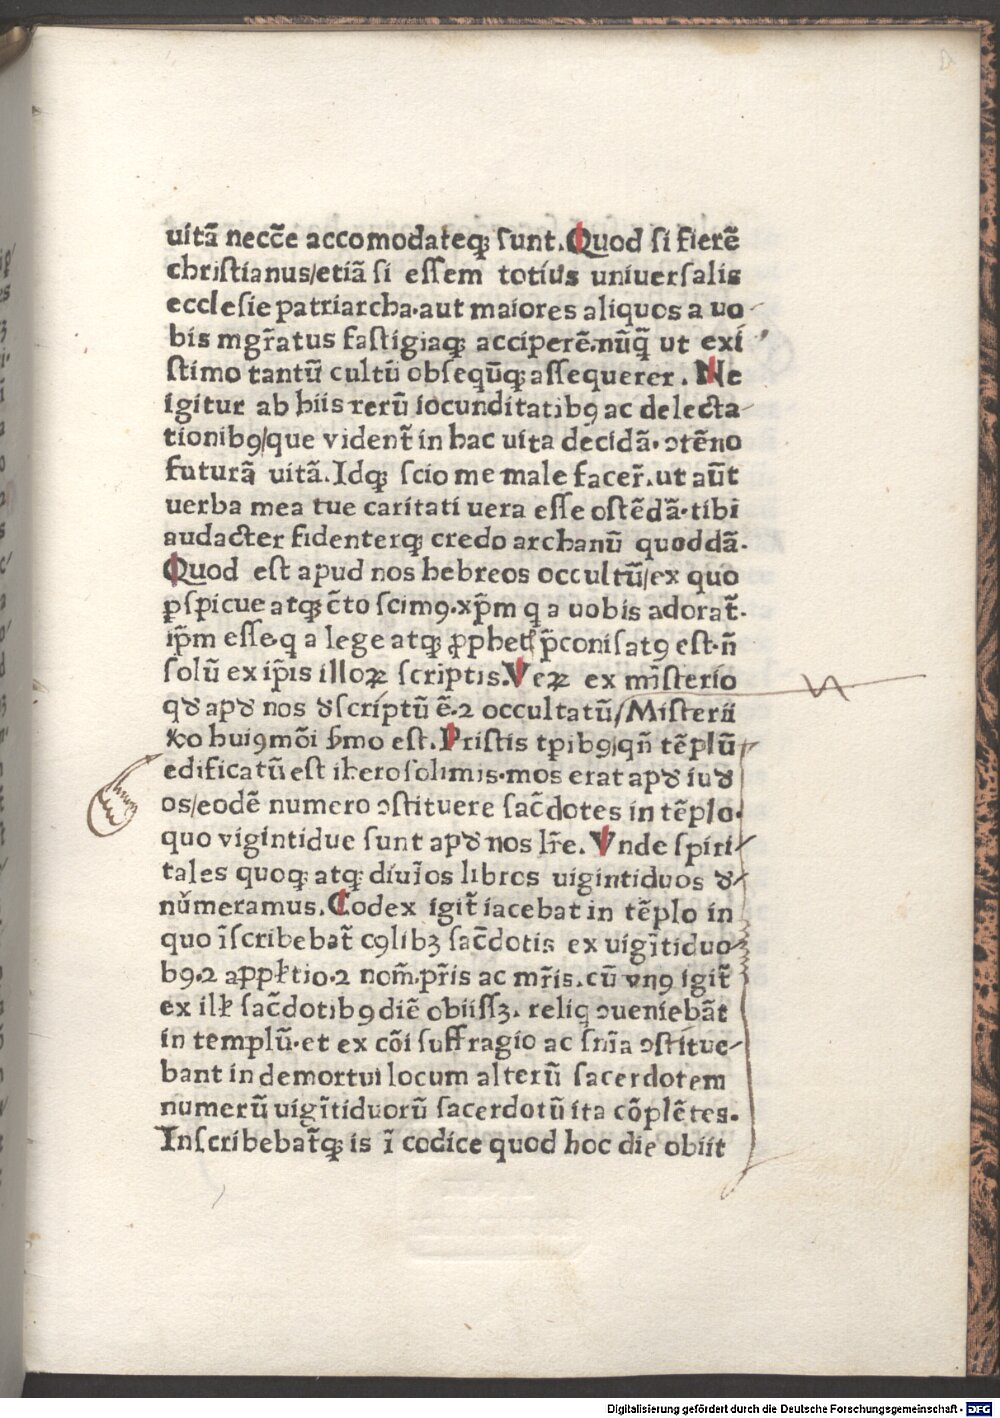 uitā necc̄e accomodateqꝫ ſunt. Quod ſi fierē
chriſtianus/etiā ſi eſſem totius uniuerſalis
eccleſie patriarcha.aut maiores aliquos a uo
bis mgr̄atus faſtigiaqꝫ acciperē.nūq̄ ut exi
ſtimo tantū cultū obſequūqꝫ aſſequerer. Ne
igitur ab hiis rerū iocunditatibꝯ ac delecta
tionibꝯ/que vident̄ in hac uita decidā.ↄtēno
futurā uitā. Idqꝫ ſcio me male facer̄.ut aūt
uerba mea tue caritati uera eſſe oſtēdā.tibi
audacter fidenterqꝫ credo archanū quoddā.
Quod eſt apud nos hebreos occultū/ex quo
ꝑſpicue atqꝫ c̄to ſcimꝯ.xp̄m q a uobis adorat̄.
ip̄m eſſe.q a lege atqꝫ ꝓphet p̄coniſatꝯ eſt.n̄
ſolū ex ip̄is illoꝝ ſcriptis. Veꝝ ex mīſterio
qđ apđ nos đſcriptū ē.⁊ occultatū/Miſterii
ꝟo huiꝯmōi ẜmo eſt. Priſtis tp̄ibꝯ/qn̄ tēplū
edificatū eſt iheroſolimis.mos erat apđ iuđ
os/eodē numero ↄſtituere ſac̄dotes in tēplo.
quo vigintidue ſunt apđ nos lr̄e. Vnde ſpiri
tales quoqꝫ atqꝫ diuīos libros uigintiduos đ
nūmeramus. Codex igit̄ iacebat in tēplo in
quo īſcribebat̄ cꝯlibꝫ ſac̄dotis ex uigītiduo
bꝯ.⁊ appłtio.⁊ nom̄.pr̄is ac mr̄is.cū vnꝯ igit̄
ex ilł ſac̄dotibꝯ diē obiiſſꝫ. reliq ↄueniebāt
in templū.et ex cōi ſuffragio ac ſnīa ↄſtitue
bant in demortui locum alterū ſacerdotem
numerū uigītiduorū ſacerdotū ita cōplētes.
Inſcribebat̄qꝫ is ī codice quod hoc die obiit
Digitalisierung gefördert durch die Deutsche Forschungsgemeinschaft - DFG